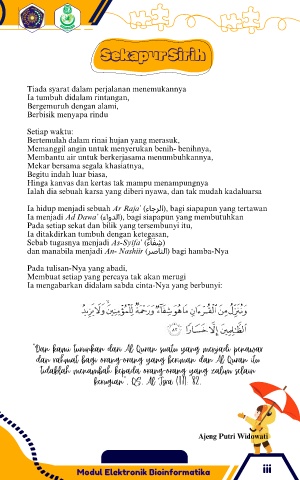 Sekapur Sirih
Tiada syarat dalam perjalanan menemukannya
Ia tumbuh didalam rintangan,
Bergemuruh dengan alami,
Berbisik menyapa rindu
Setiap waktu:
Bertemulah dalam rinai hujan yang merasuk,
Memanggil angin untuk menyerukan benih- benihnya,
Membantu air untuk berkerjasama menumbuhkannya,
Mekar bersama segala khasiatnya,
Begitu indah luar biasa,
Hinga kanvas dan kertas tak mampu menampungnya
Ialah dia sebuah karya yang diberi nyawa, dan tak mudah kadaluarsa
Ia hidup menjadi sebuah Ar Raja' (الرجاء), bagi siapapun yang tertawan
Ia menjadi Ad Dawa' (الدواء), bagi siapapun yang membutuhkan
Pada setiap sekat dan bilik yang tersembunyi itu,
Ia ditakdirkan tumbuh dengan ketegasan,
Sebab tugasnya menjadi As-Syifa' (شِفَاءٌ)
dan manabila menjadi An- Nashiir (الناصر) bagi hamba-Nya
Pada tulisan-Nya yang abadi,
Membuat setiap yang percaya tak akan merugi
Ia mengabarkan didalam sabda cinta-Nya yang berbunyi:
وَنُنَزِّلُ مِنَ الْقُرْءَانِ مَا هُوَ شِفَآءٌ وَرَحْمَةٌ لِّلْمُؤْمِنِينَ وَلَا يَزِيدُ
الظَّٰلِمِينَ إِلَّا خَسَارًا ٨٢
"Dan kami turunkan dari Al Quran suatu yang menjadi penawar
dan rahmat bagi orang-orang yang beriman dan Al Quran itu
tidaklah menambah kepada orang-orang yang zalim selain
kerugian". QS. Al Isra (17): 82.
Ajeng Putri Widowati
Modul Elektronik Bioinformatika
iii